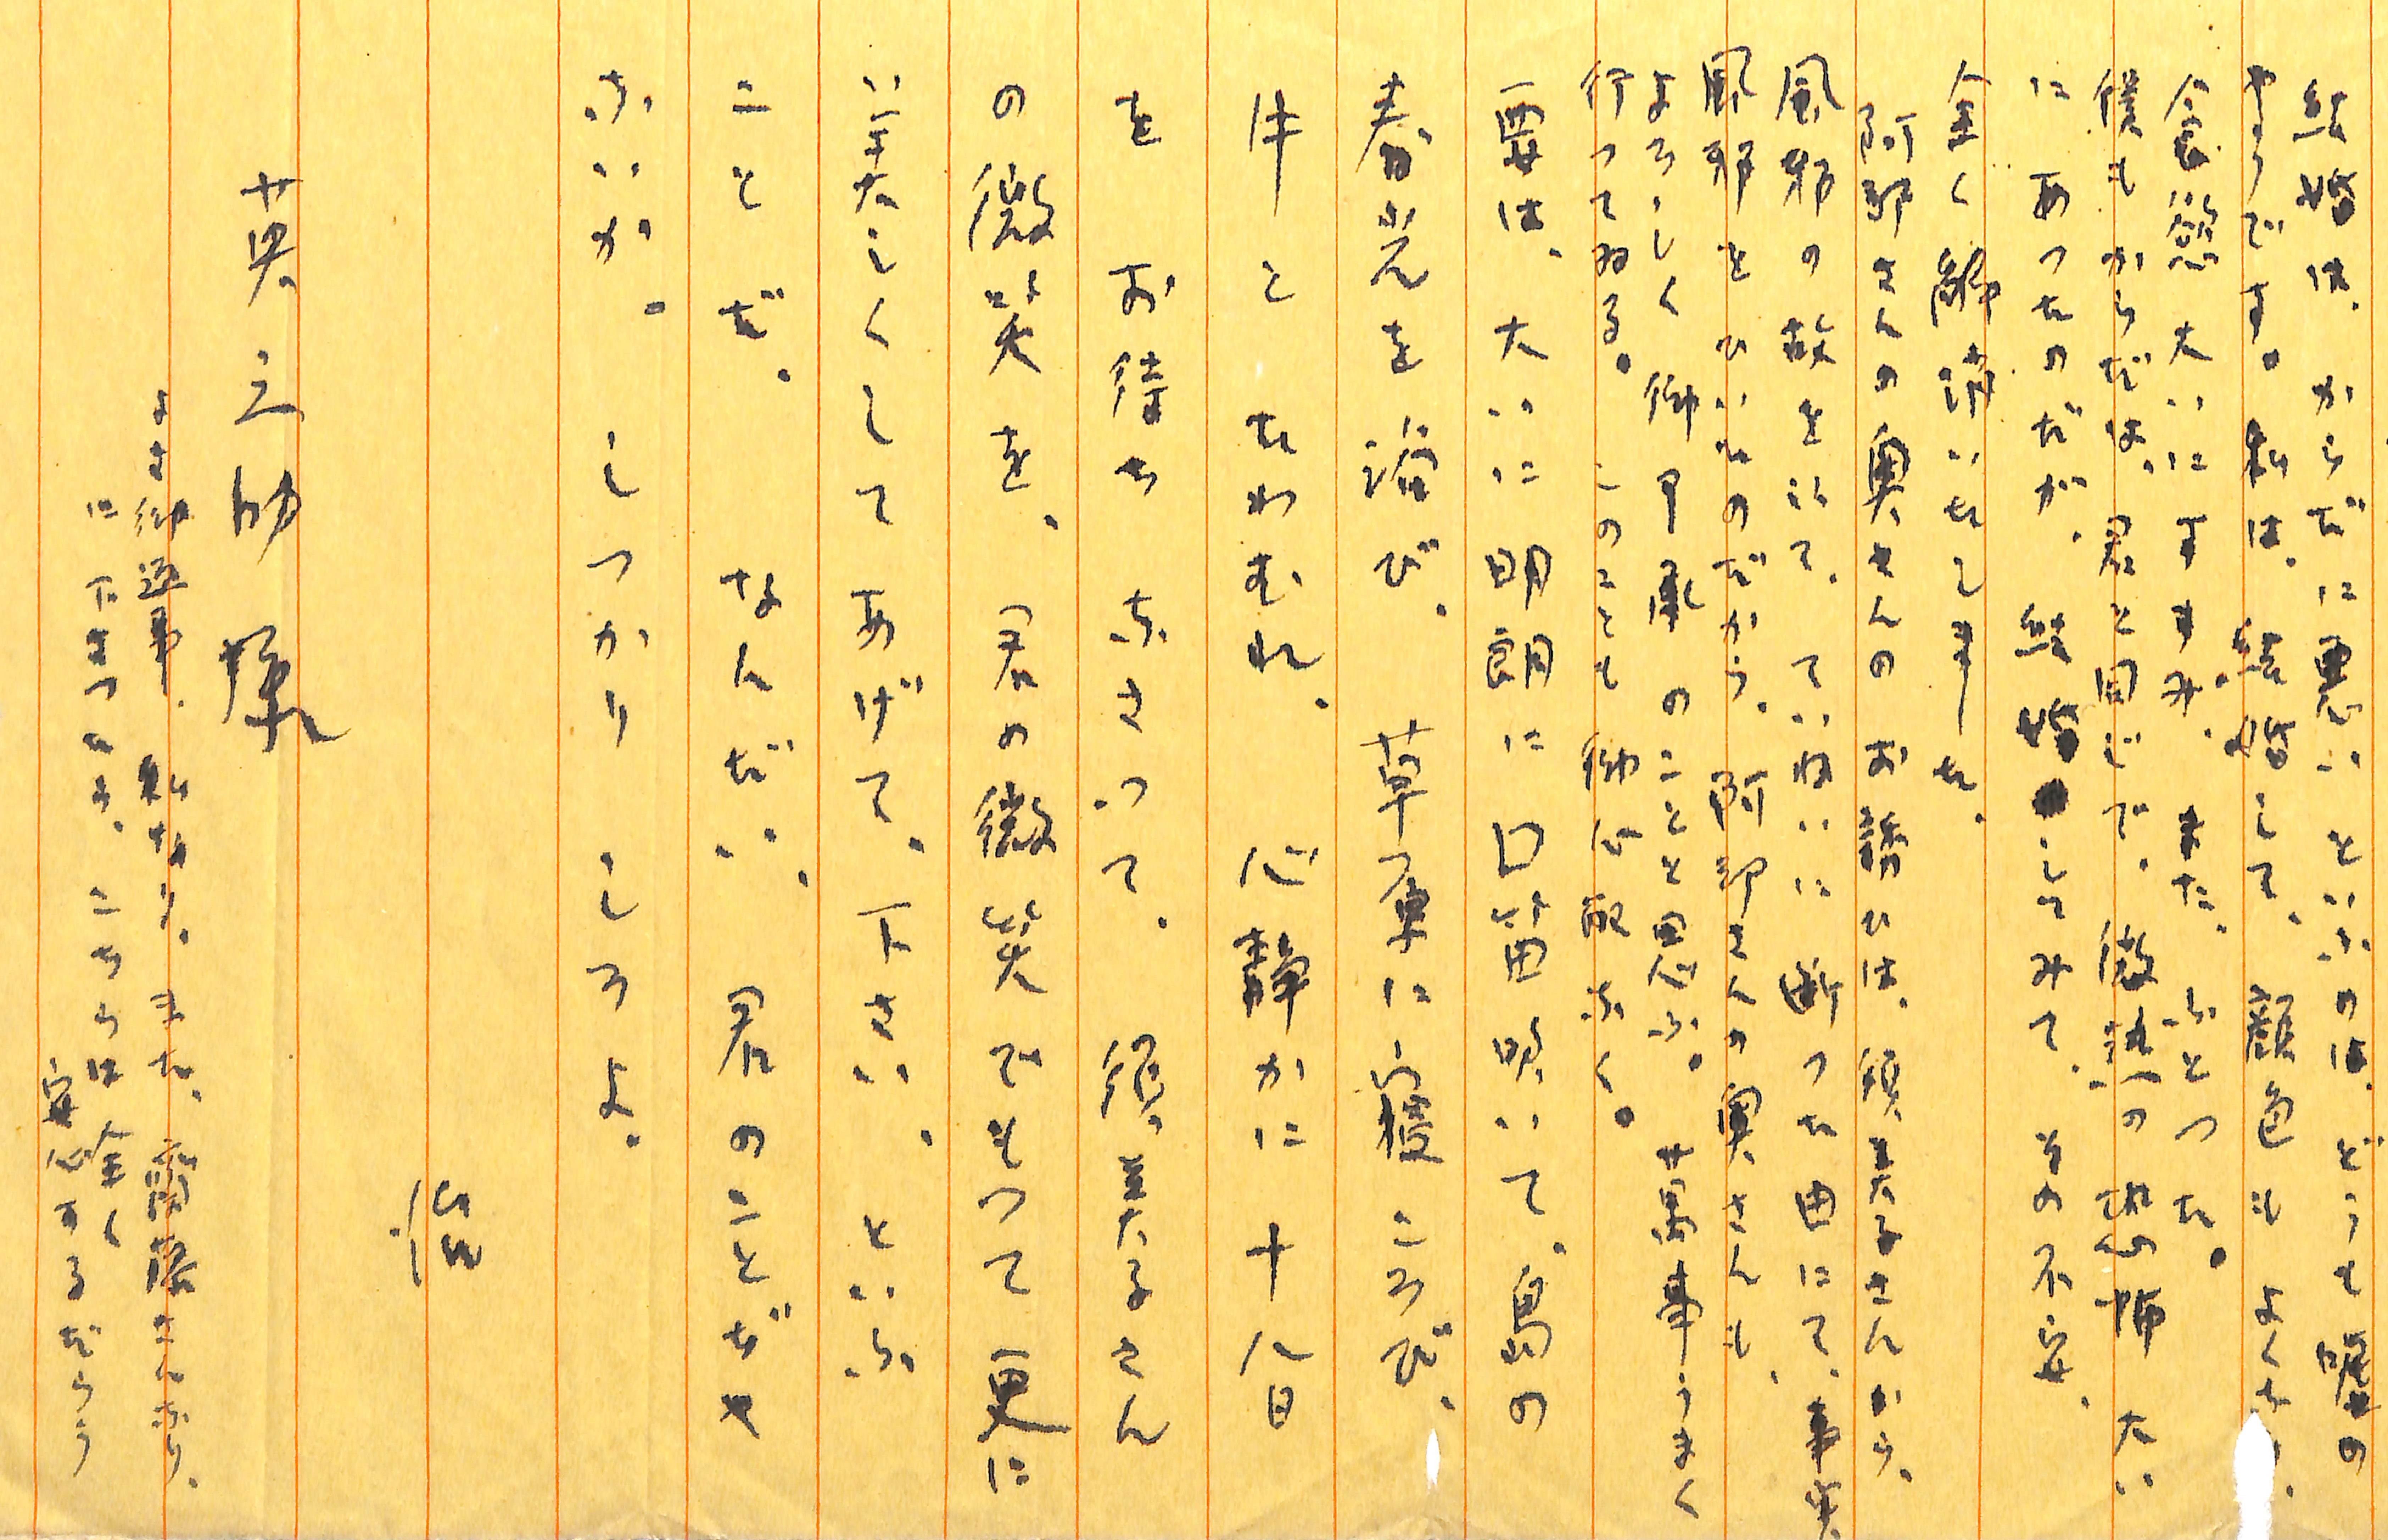 結婚は、からだに悪いといふのは、どうも嘘の
やうです。私は、結婚して、顔色もよくなり、
食慾大いにすすみ、また、ふとつた。
僕もからだは、君と同じで、微熱の恐怖大い
にあつたのだが、結婚してみて、その不安、
全く解消いたしました。
阿部さんの奥さんのお話では、須美子さんから、
風邪の故をいて、ていねいに断つた由にて、事実
風邪をひいたのだから、阿部さんの奥さんも、
よろしく御申訳のことと思ふ。萬事うまく
行つてゐる。このことも御休心被下く。
要は、大いに明朗に口笛吹いて、鳥の
春光を浴び、草原に寝ころび、
牛とたわむれ、心静かに十八日
をお待ち下さつて、須美子さん
の微笑を、君の微笑でもつて更に
美しくしてあげて、下さい、といふ
ことだ。なんだい、君のことぢや
ないか。しつかりしろよ。
治
英之助 様
なほ御返事、私なり、また、斎藤さんなり、
に下さつたら、こちらは全く
安心するだらう